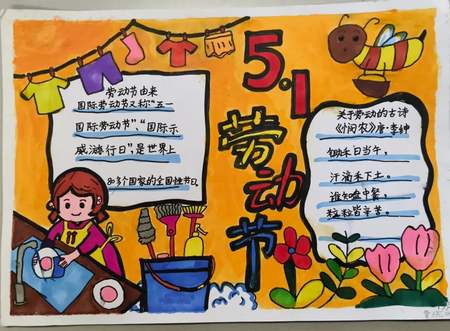 5.1
劳动节
劳动节由来
国际劳动节又称"五一
国际劳动节"、"国际示
威游行日"是世界上
80多个国家的全国性节日
关于劳动的古诗
《悯农》唐·李绅
锄禾日当午,
汗滴禾下土。
谁知盘中餐,
粒粒皆辛苦。